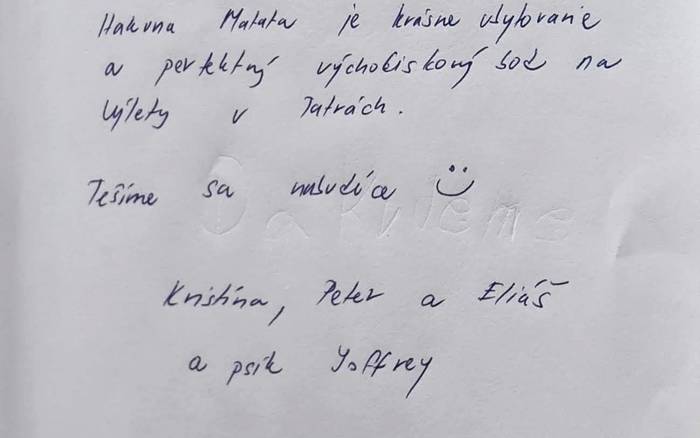 Hakuna Matata je krásne ubytovanie
a perfektný východiskový bod na
výlety v Tatrách.
Tešíme sa nabudúce
Ďakujeme
Kristína, Peter a Eliáš
a psík Joffrey